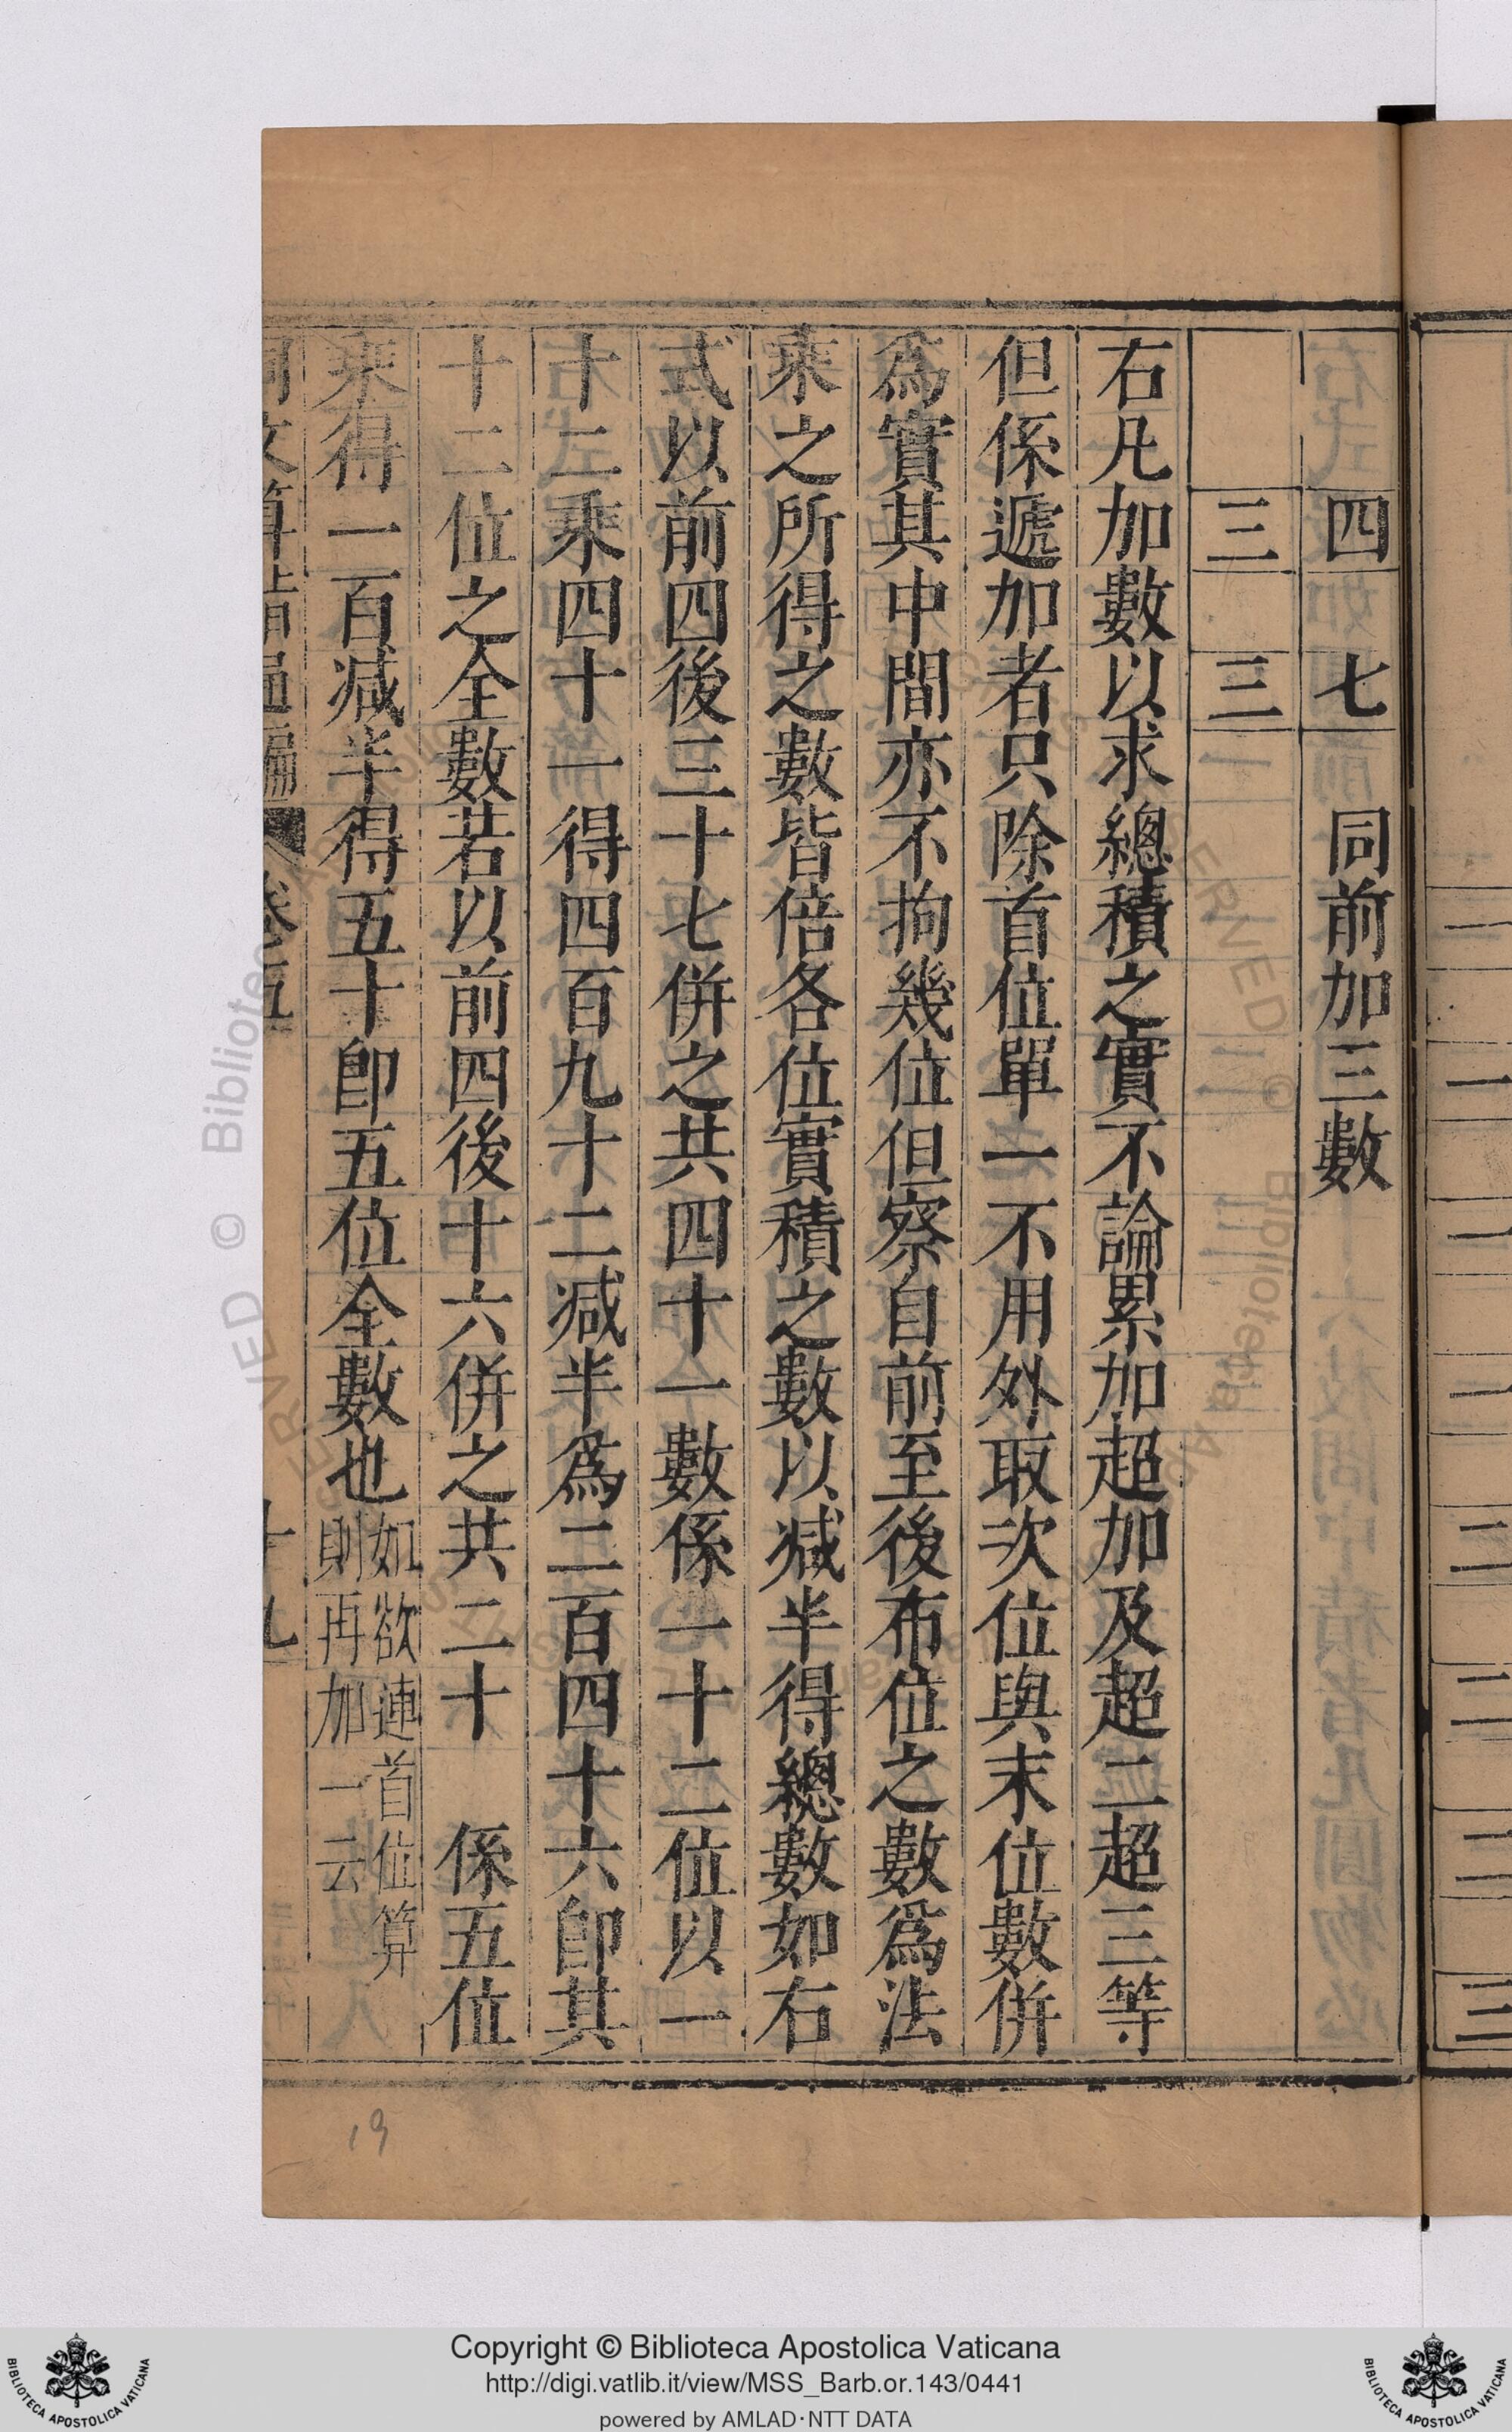 四 七 同前加三數
三 三
右凡加數以求總積之實不論累加超加及超二超三等
但係遞加者只除首位單一不用外取次位與末位數併
爲實其中間亦不拘幾位但察自前至後布位之數爲法
乘之所得之數皆倍各位實積之數以减半得總數如右
式以前四後三十七併之共四十一數係一十二位以一
十二乘四十一得四百九十二减半爲二百四十六卽其
十二位之全數若以前四後十六併之共二十 係五位
乘得一百减半得五十卽五位全數也如欲連首位算
則再加一云
同文算指通編 卷五 十九
19
Copyright © Biblioteca Apostolica Vaticana
http://digi.vatlib.it/view/MSS_Barb.or.143/0441
powered by AMLAD·NTT DATA
BIBLIOTECA APOSTOLICA VATICANA
BIBLIOTECA APOSTOLICA VATICANA